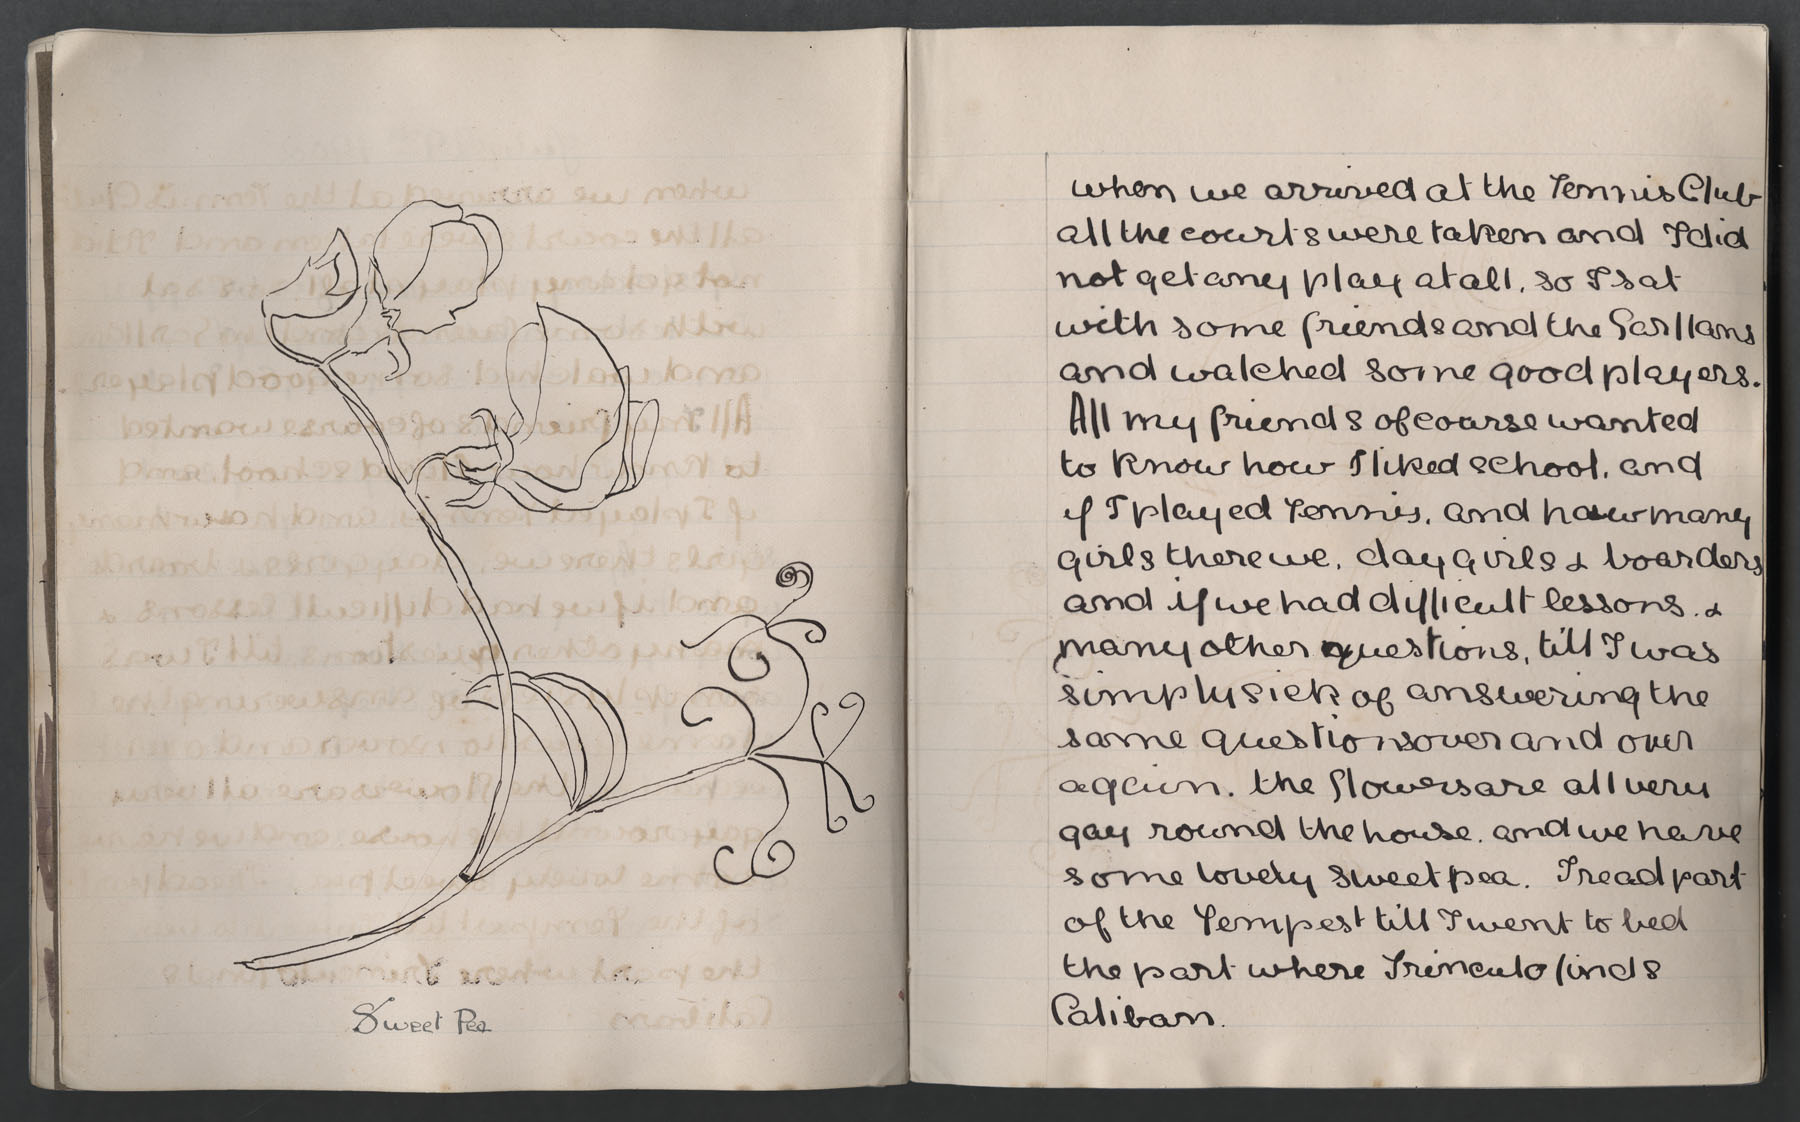 Sweet Pea
when we arrived at the Tennis Club
all the courts were taken and I did
not get any play at all, so I sat
with some friends and the Garllans
and watched some good players.
All my friends of course wanted
to know how I liked school, and
if I played Tennis, and how many
girls there we, day girls & boarders
and if we had difficult lessons. &
many other questions, till I was
simply sick of answering the
same questions over and over
again. the flowers are all very
gay round the house. and we have
some lovely sweet pea. I read part
of the Tempest till I went to bed
the part where Trinculo finds
Caliban.